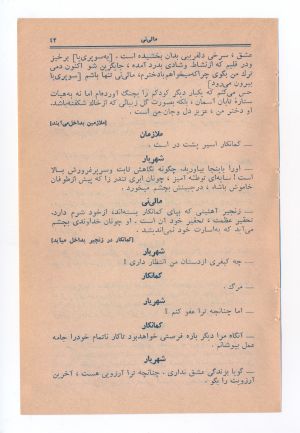 مالی‌نی ۴۳
عشق ، سرخی دلفریبی بدان بخشیده است . [به‌سوپری‌یا] برخیز
ودر قلبم که ازنشاط وشادی بدرد آمده ، جایگزین شو اکنون دمی
ترك من بگوی چراکه‌میخواهم‌بادخترم، مالی‌نی تنها باشم [سوپری‌یا
بیرون می‌رود]
حس می‌کنم که یکبار دیگر کودکم را بچنگ آورده‌ام اما نه به‌هیأت
ستارهٔ تابان آسمان ، بلکه بصورت گل زیبائی که ازخاك شکفته‌باشد.
او دختر من ، عزیز دل وجان من است .
[ملازمین بداخل‌می‌آیند]
ملازمان
— کمانکار اسیر پشت در است .
شهریار
— اورا باینجا بیاورید. چگونه نگاهش ثابت وسرپرغرورش بالا
است ؟ سایه‌ای توطئه آمیز ، چونان ابری تندر زا که پیش ازطوفان
خاموش باشد ، درجبینش بچشم میخورد .
مالی‌نی
— زنجیر آهنینی که بپای کمانکار بسته‌اند، ازخود شرم دارد.
تحقیر عظمت ، تحقیر خود آن است . او چونان خداوندی بچشم
می‌آید که به‌اسارت خود نمی‌اندیشد .
[کمانکار در زنجیر بداخل میآید]
شهریار
— چه کیفری ازدستان من انتظار داری ؟
کمانکار
— مرگ .
شهریار
— اما چنانچه ترا عفو کنم ؟
کمانکار
— آنگاه مرا دیگر باره فرصتی خواهدبود تاکار ناتمام خودرا جامه
عمل بپوشانم .
شهریار
— گویا بزندگی عشق نداری . چنانچه ترا آرزویی هست ، آخرین
آرزویت را بگو .